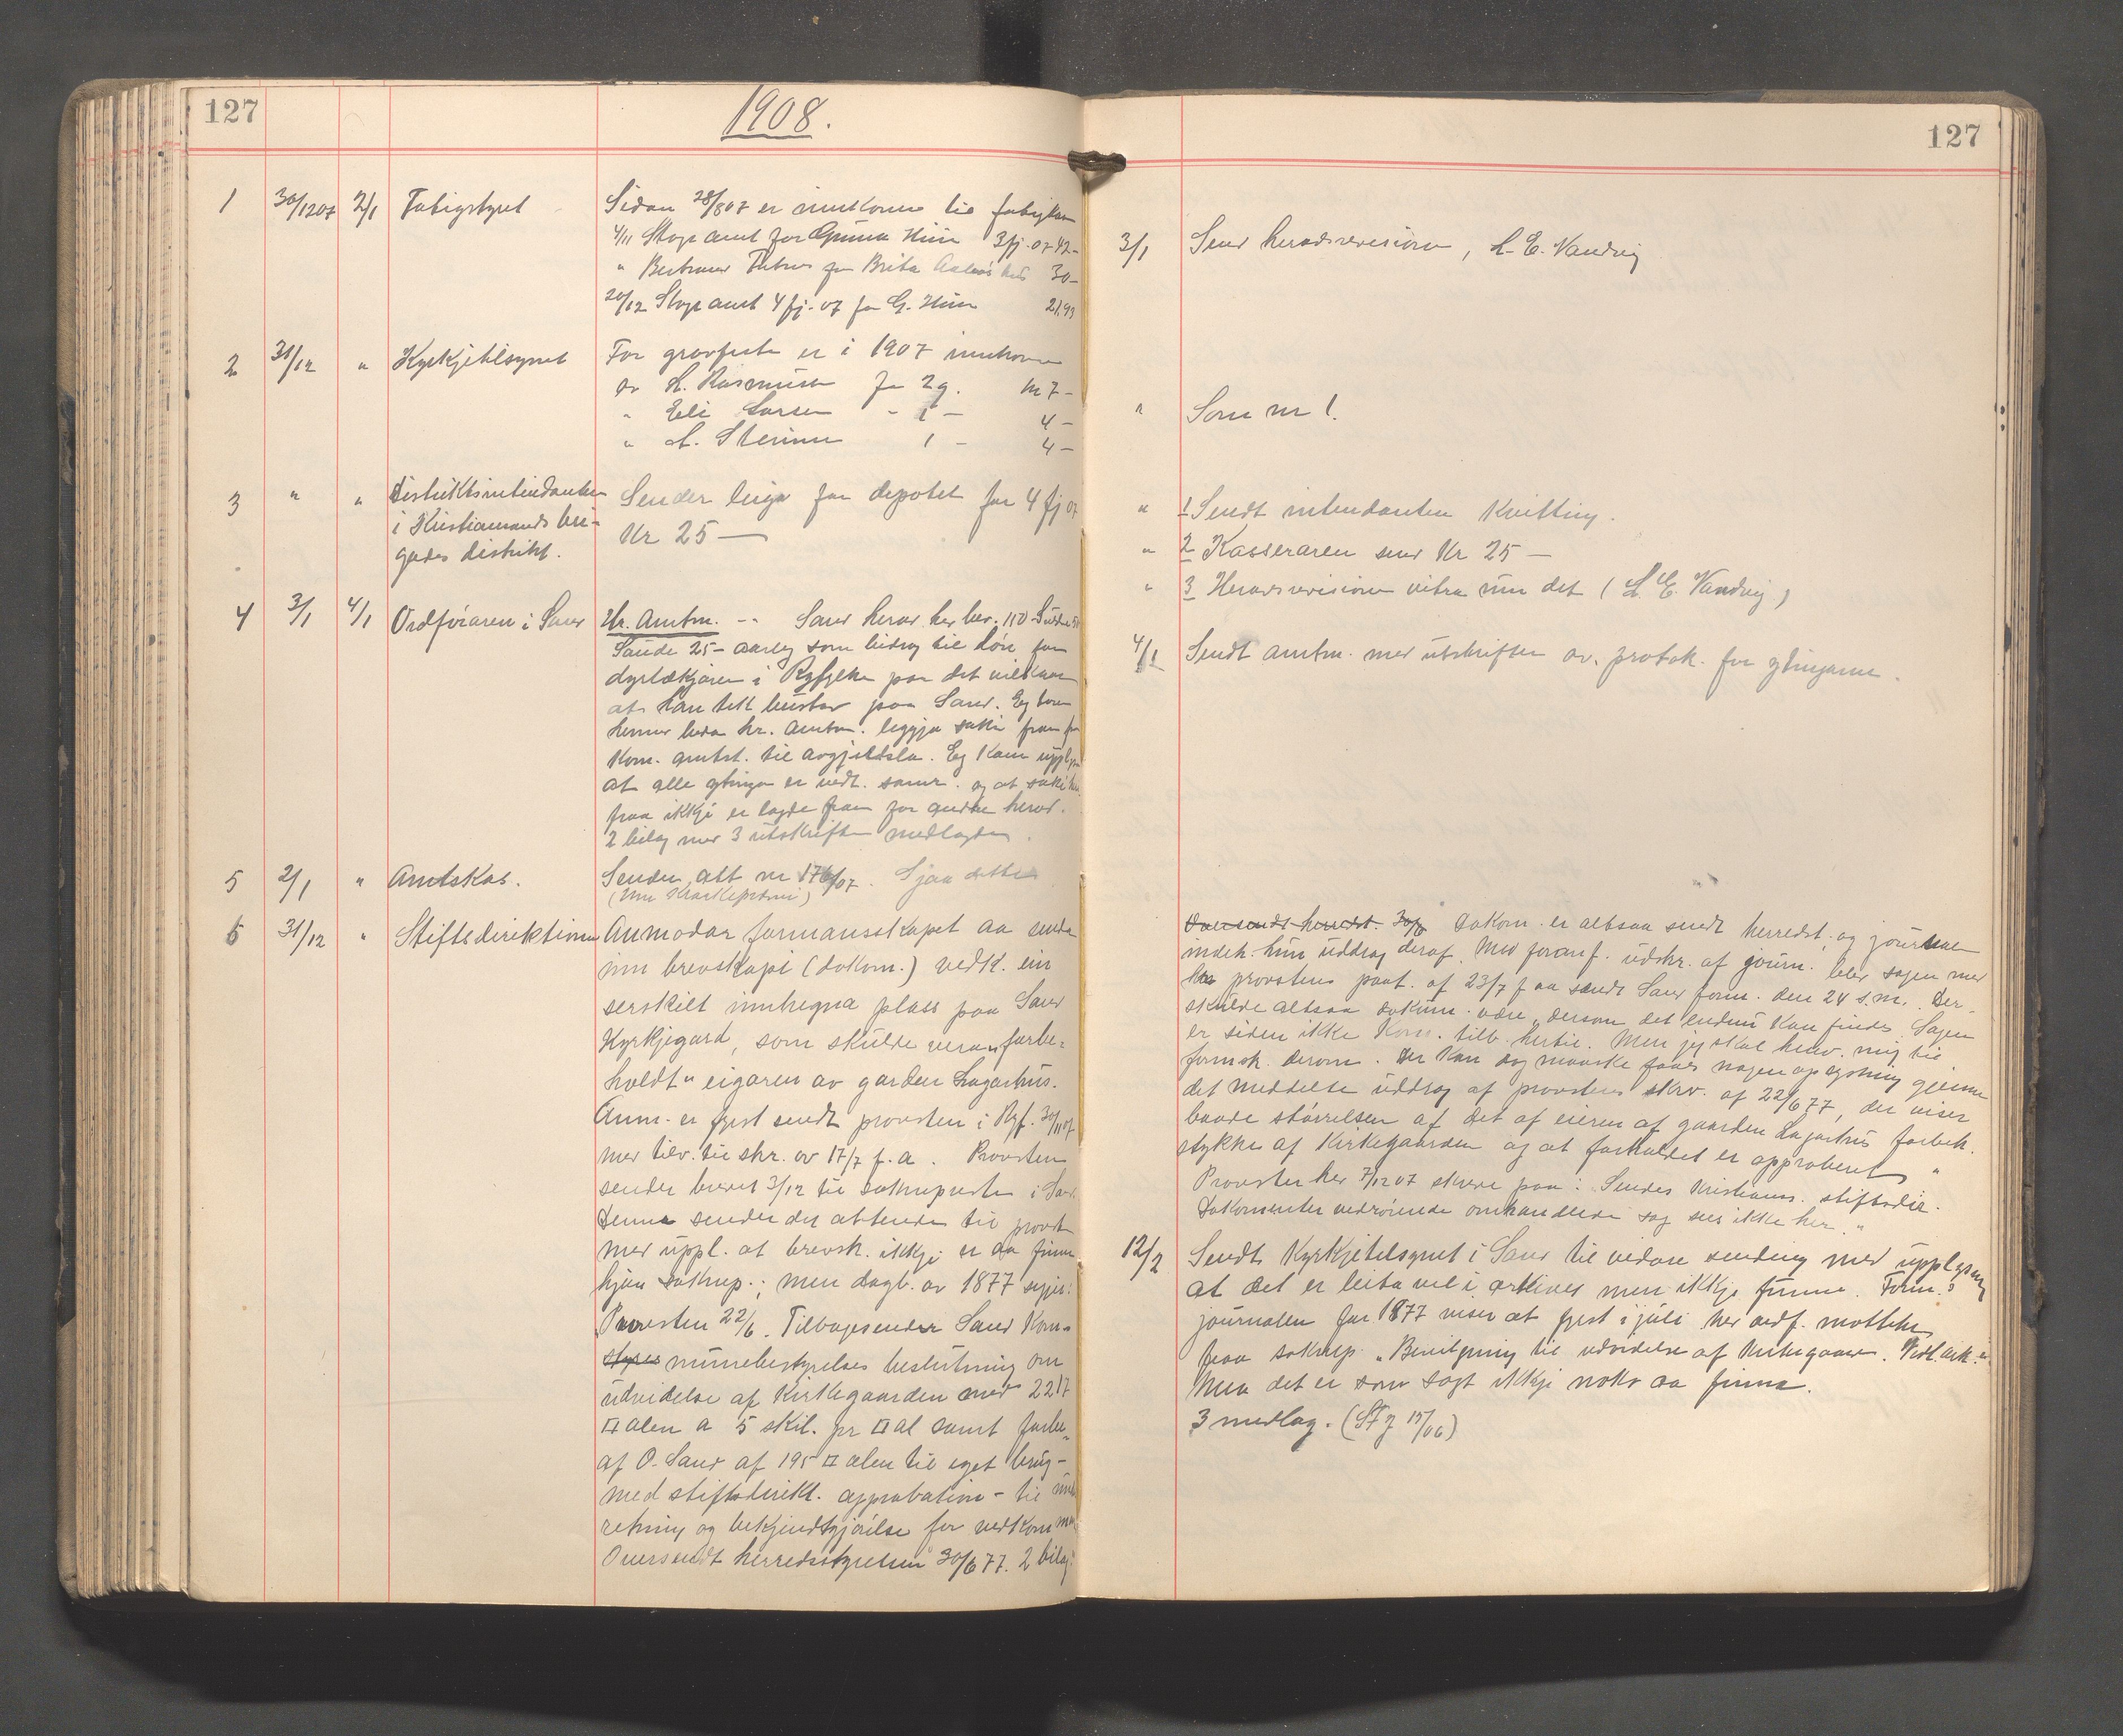 127
1908.
1 30/1207 2/1 Fatigstyret Sidan 28/807 er innkome til fatigkas
4/11 Skogs amt for Gunna Hiim 3 fj. 07 42-
" for Brita 30-
20/12 Skogs amt 4 fj. 07 for G. Hiim 21,93
2 31/12 " Kyrkjetilsynet For gravfeste er i 1907 innkome
av L. Rasmusen for 2 g. kr 7-
" Eli Larsen - 1 - 4-
" L. 1 - 4-
3 " " Distriktsintendanten Sender leiga for depotet for 4 fj 07
i Kristiansands bri- Kr 25 —
gades distrikt.
4 3/1 4/1 Ordføraren i Sand Hr. Amtm. -- Sand herad her bev. 150
Saude 25- aarleg som bidrag til løn for
dyrlækjaren i Ryfylke paa det vilkaar
at han tek bustad paa Sand. Eg
beda hr. Amtm. leggja saki fram for
Kom. amtst. til avgjerdsla. Eg kann upplysa
at alle gtinga er vedt. samr. og at saki
fraa ikkje er lagde fram for andre herad.
2 bilag med 3 utskrifter medlagde.
5 2/1 " Amtskas. Sender att nr 176/07. Sjaa dette

6 31/12 " Stiftsdirektionen Anmodar formansskapet aa senda
inn brevskapi (dokum.) vedk. ein
serskilt innhegna plass paa Sand
Kyrkjegard, som skulde vera „forbe-
holdt" eigaren av garden Lagarhus.
Anm. er fyrst sendt provsten i Ryf. 30/11 07
med tilv. til skr. av 17/7 f.a. Provsten
sender brevet 3/12 til soknepresten i Sand.
Denne sender det attende til provst
med uppl. at brevsk. ikkje er aa finna
hjaa soknep.; men dagb. av 1877 segjer:
Provsten 22/6. Tilbagesender Sand Kom-
styres munebestyrelses beslutning om
udvidelse af Kirkegaarden med 2217
□ alen a 5 skil. pr □ al samt forbe-
af O. Sand af 195 □ alen til eget brug -
med stiftsdirekt. approbation - til und
retning og bekjendtgjørelse for vedkomm
Oversendt herredsstyrelsen 30/6 77. 2 bilag.
127
3/1 Send heradsrevisionen, L. E. Vandvig
" Som nr 1.
" 1 Sendt intendanten Kvittring.
" 2 Kasseraren send Kr 25 —
" 3 Heradsrevisionen vitra um det (L. E. Vandvig)
4/1 Sendt amtm. med utskrifter av protok. for gtingarne.
Oversendt herredst. 30/6 Dokum. er altsaa sendt herredst. og journalen
indeh. kun uddrag deraf. Med foranf. udskr. af journ. blev sagen med
provstens paat. af 23/7 f aa sendt Sand form. den 24 s.m. Der
skulde altsaa dokum. være, dersom det endnu kan findes. Sagen
er siden ikke kom. tilb. hertil. Men jeg skal henv. mig til
formsk. derom. Der kan dog maaske faaes nogen oplysning gjennem
det meddelte uddrag af provstens skrv. af 22/6 77, der viser
baade størrelsen af det af eieren af gaarden Lagarhus forbeh.
stykke af Kirkegaarden og at forholdet er approberet "
Provsten her 7/12 07 skreve paa: Sendes Kristians. stiftsdir.
Dokumenter vedrørende omhandlede sag sees ikke her."
12/2 Sendt Kyrkjetilsynet i Sand til vidare sending med upplysning
at det er leita vel i arkivet men ikkje funne. Form.s
journalen for 1877 viser at fyrst i juli her ordf. motteke
fraa soknep. „Bevilgning til udvidelse af Kirkegaard. Vedl. ark."
Men det er som sagt ikkje noko aa finna.
3 medlag. (St J 15/06)